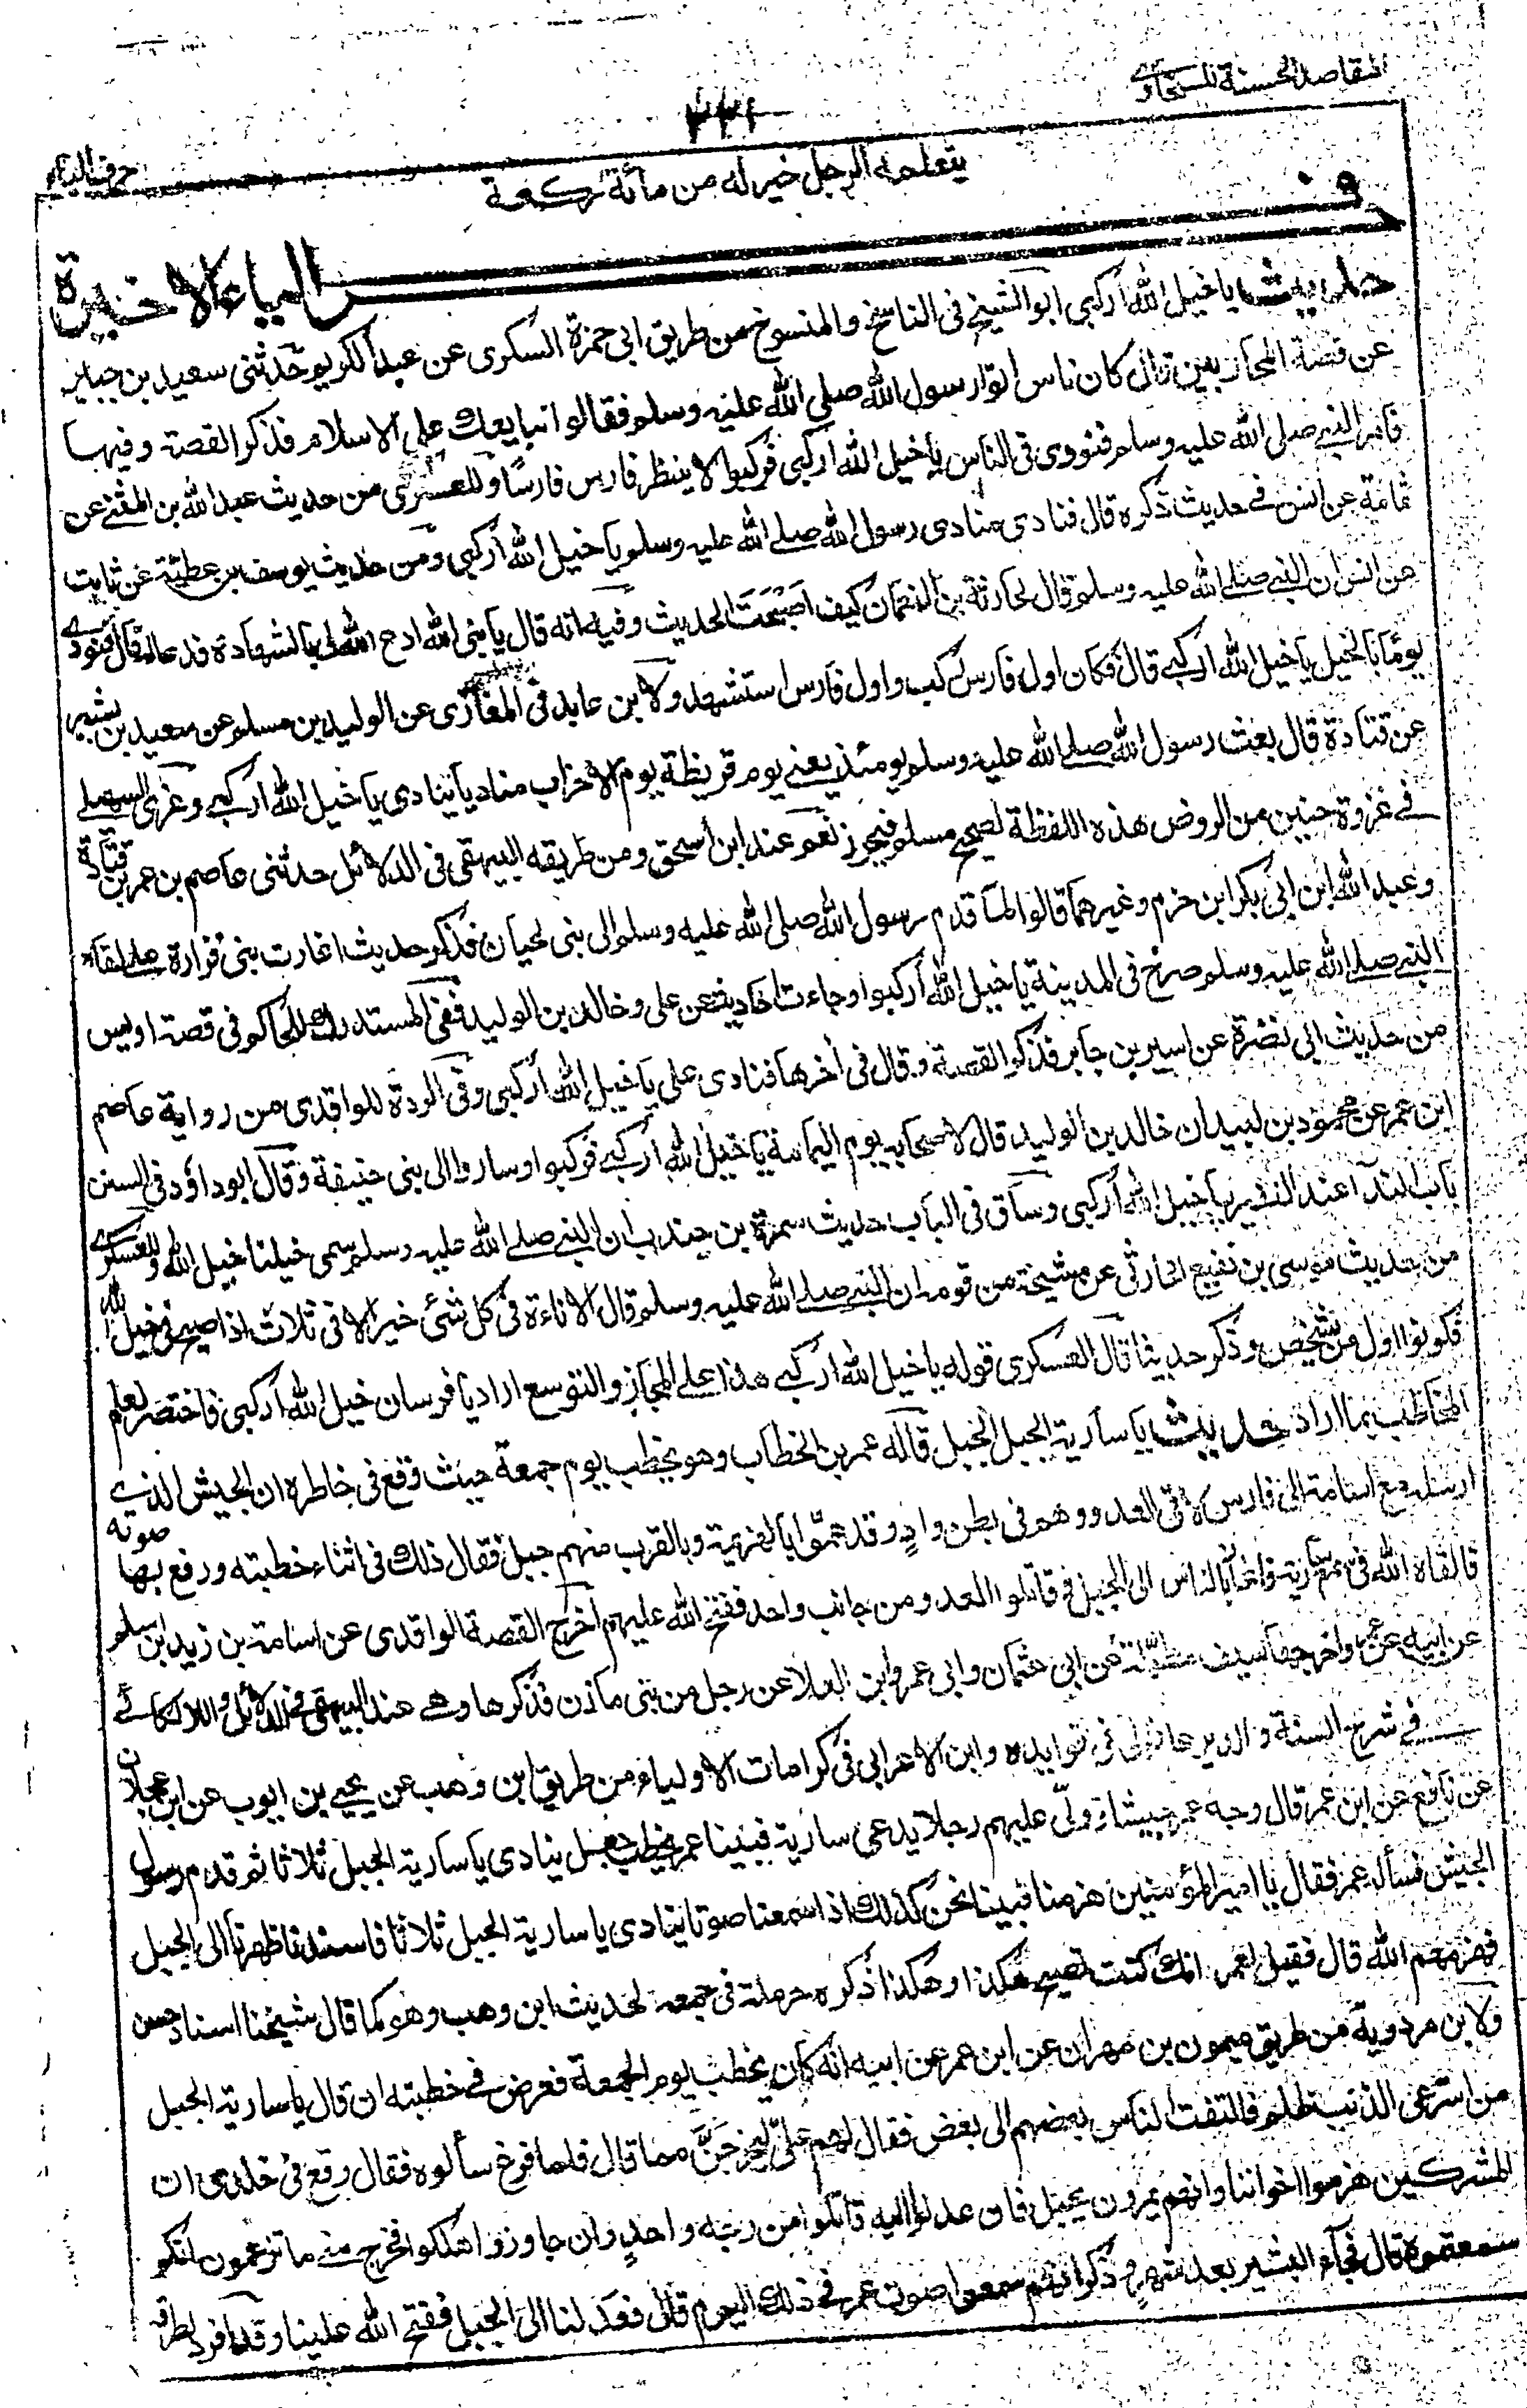 المقاصد الحسنة للسخاوى
٢٢١
حرف الياء
يتعلمه الرجل خير له من مائة ركعة
حرف الياء الاخيرة
حديث يا خيل الله اركبى ابو الشيخ فى الناسخ والمنسوخ من طريق ابى حمزة السكرى عن عبد الكريم حدثنى سعيد بن جبير
عن قصة المحاربين قال كان ناس اتوا رسول الله صلى الله عليه وسلم فقالوا نبايعك على الاسلام فذكر القصة وفيها
فامر النبى صلى الله عليه وسلم فنودى فى الناس يا خيل الله اركبى فركبوا لا ينظر فارس فارسا وللعسكرى من حديث عبد الله بن المثنى عن
ثمامة عن انس فى حديث ذكره قال فنادى منادى رسول الله صلى الله عليه وسلم يا خيل الله اركبى ومن حديث يوسف بن عطية عن ثابت
عن انس ان النبى صلى الله عليه وسلم قال لحارثة بن النعمان كيف اصبحت الحديث وفيه انه قال يا نبى الله ادع الله لى بالشهادة فدعا له قال فنودى
يوما بالخيل يا خيل الله اركبى قال فكان اول فارس ركب واول فارس استشهد ولابن عايد فى المغازى عن الوليد بن مسلم عن سعيد بن بشير
عن قتادة قال بعث رسول الله صلى الله عليه وسلم يومئذ يعنى يوم قريظة يوم الاحزاب مناديا ينادى يا خيل الله اركبى وعزى السهيلى
فى غزوة حنين من الروض هذه اللفظة لصحيح مسلم فيحرز نعم عند ابن اسحق ومن طريقه البيهقى فى الدلائل حدثنى عاصم بن عمر بن قتادة
وعبد الله ابن ابى بكر ابن حزم وغيرهما قالوا لما قدم رسول الله صلى الله عليه وسلم الى بنى لحيان فذكر حديث اغارت بنى فزارة على لقاح
النبى صلى الله عليه وسلم صرخ فى المدينة يا خيل الله اركبوا وجاءت احاديث عن على وخالد بن الوليد ففى المستدرك للحاكم فى قصة اويس
من حديث ابى نضرة عن اسير بن جابر فذكر القصة وقال فى اخرها فنادى على يا خيل الله اركبى وفى الردة للواقدى من رواية عاصم
ابن عمر عن محمود بن لبيد ان خالد بن الوليد قال لاصحابه يوم اليمامة يا خيل الله اركبى فركبوا وساروا الى بنى حنيفة وقال ابو داؤد فى السنن
باب الندآ عند النفير يا خيل الله اركبى وساق فى الباب حديث سمرة بن جندب ان النبى صلى الله عليه وسلم سمى خيلنا خيل الله وللعسكرى
من حديث موسى بن نفيع الحارثى عن مشيخة من قومه ان النبى صلى الله عليه وسلم قال الاناءة فى كل شئ خير الا فى ثلاث اذا صيح فى خيل الله
فكونوا اول من يشخص وذكر حديثا قال العسكرى قوله يا خيل الله اركبى هذا على المجاز والتوسع اراد يا فرسان خيل الله اركبى فاختصر لعلم
المخاطب بما اراد حديث يا سارية الجبل الجبل قاله عمر بن الخطاب وهو يخطب يوم جمعة حيث وقع فى خاطره ان الجيش الذى
ارسله مع اسامة الى فارس لاقى العدو وهم فى بطن واد وقد هموا بالهزيمة وبالقرب منهم جبل فقال ذلك فى اثناء خطبته ورفع بها صوته
فالقاه الله فى سمع سارية فانحاز بالناس الى الجبل فقاتلوا العدو من جانب واحد ففتح الله عليهم اخرج القصة الواقدى عن اسامة بن زيد ابن سلم
عن ابيه عن عمر واخرجها سيف مطولة عن ابى عثمان وابى عمرو ابن العلا عن رجل من بنى مازن فذكرها وهى عند البيهقى فى الدلائل واللالكائى
فى شرح السنة والديرعاقولى فى فوايده وابن الاعرابى فى كرامات الاولياء من طريق ابن وهب عن يحيى بن ايوب عن ابن عجلان
عن نافع عن ابن عمر قال وجه عمر جيشا وولى عليهم رجلا يدعى سارية فبينا عمر يخطب جعل ينادى يا سارية الجبل ثلاثا ثم قدم رسول
الجيش فسأله عمر فقال يا امير المؤمنين هزمنا فبينا نحن كذلك اذ سمعنا صوتا ينادى يا سارية الجبل ثلاثا فاسندنا ظهرنا الى الجبل
فهزمهم الله قال فقيل لعمر انك كنت تصيح هكذا وهكذا ذكره حرملة فى جمعه لحديث ابن وهب وهو كما قال شيخنا اسناد حسن
ولابن مردوية من طريق ميمون بن مهران عن ابن عمر عن ابيه انه كان يخطب يوم الجمعة فعرض فى خطبته ان قال يا سارية الجبل
من استرعى الذئب ظلم فالتفت الناس بعضهم الى بعض فقال لهم على ليخرجن مما قال فلما فرغ سألوه فقال وقع فى خلدى ان
المشركين هزموا اخواننا وانهم يمرون بجبل فان عدلوا اليه قاتلوا من وجه واحد وان جاوزوا هلكوا فخرج منى ما تزعمون انكم
سمعتموه قال فجآء البشير بعد شهر وذكر انهم سمعوا صوت عمر فى ذلك اليوم قال فعدلنا الى الجبل ففتح الله علينا وقد افرد لطرقه